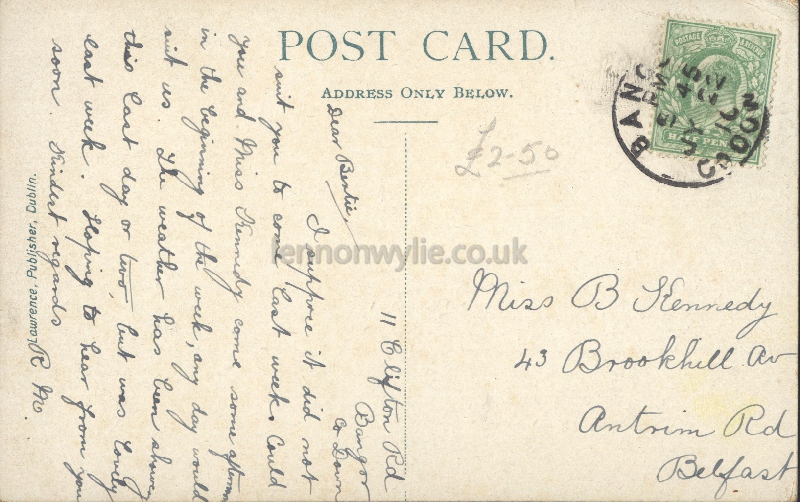 POST CARD.
ADDRESS ONLY BELOW.
£2-50
BANGOR
HALF PENNY
POSTAGE
11 Clifton Rd
Bangor
Co Down
Dear Bertie,
I suppose it did not
suit you to come last week. Could
you and Miss Kennedy come some afternoon
in the beginning of the week, any day would
suit us. The weather has been showery
this last day or two, but was lovely
last week. Hoping to hear from you
soon. Kindest regards
R M.
Lawrence, Publisher, Dublin.
Miss B Kennedy
43 Brookhill Av
Antrim Rd
Belfast
lennonwylie.co.uk